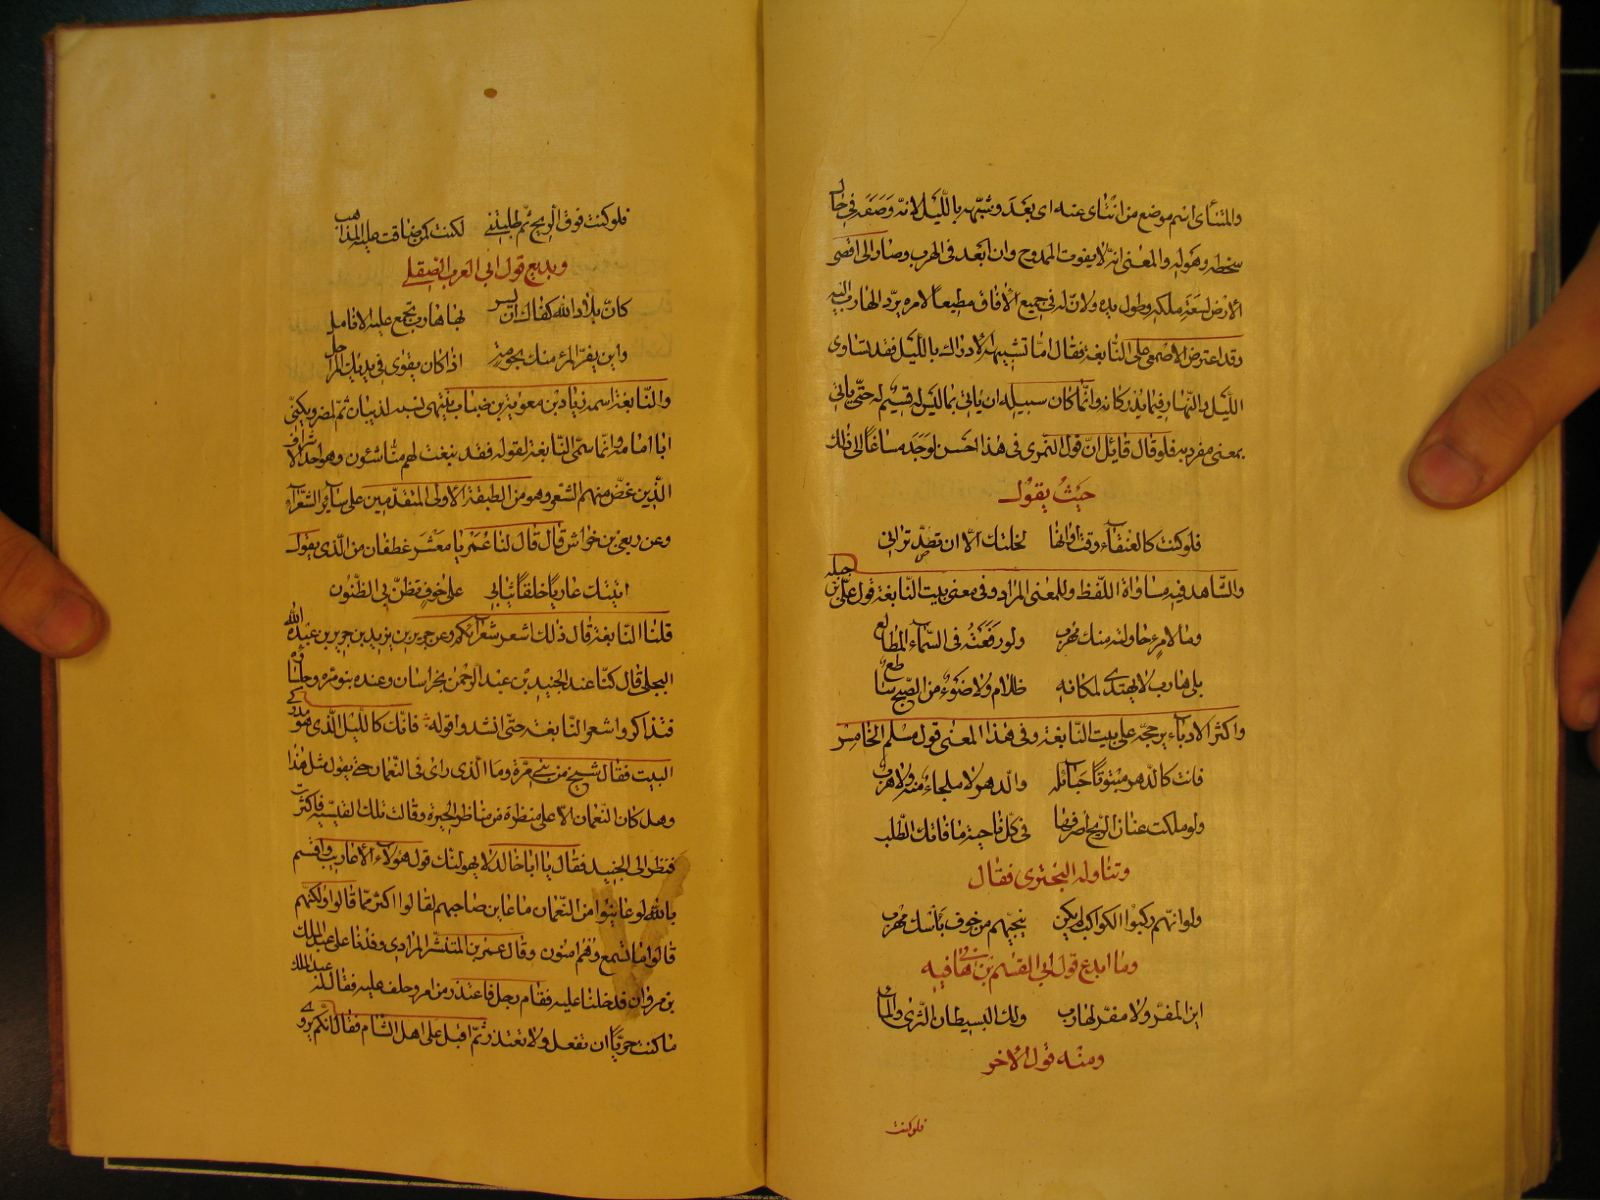 والمنتأى اسم موضع من انتأى عنه اى بعد وشبهه بالليل لانه وصفه فى حال
سخطه وهوله والمعنى انه لا يفوت الممدوح وان ابعد فى الهرب وصار الى اقصى
الارض لسعة ملكه وطول يده ولان له فى جميع الآفاق مطيعا لامره يرد الهارب اليه
وقد اعترض الاصمعى على النابغة فقال اما تشبيهه الادراك بالليل فقد تساوى
الليل والنهار فيما يدركانه وانما كان سبيله ان ياتى بما ليس له قسيم له حتى ياتى
بمعنى مفرد به فلو قال قايل ان قول النمرى فى هذا احسن لوجد مساغا الى ذلك
حيث يقول
فلو كنت كالعنقاء وقت لواتها لخلتك الا ان تصد ترانى
والشاهد فيه مساواة اللفظ وللمعنى المراد وفى معنى بيت النابغة قول على بن جبله
وما لامرء حاولته منك مهرب ولو رفعته فى السماء المطالع
بلى هارب لا يهتدى لمكانه ظلام ولا ضوء من الصبح ساطع
واكثر الادباء يرجحه على بيت النابغة وفى هذا المعنى قول سلم الخاسر
فانت كالدهر مبثوثا حبائله والدهر لا ملجاء منه ولا هرب
ولو ملكت عنان الريح اصرفها فى كل ناحية ما فاتك الطلب
وتناوله البحترى فقال
ولو انهم ركبوا الكواكب لم يكن ينجيهم من خوف بأسك مهرب
وما ابدع قول ابى القسم بن هانى فيه
اين المفر ولا مفر لهارب ولك البسيطان الثرى والماء
ومنه قول الاخر
فلو كنت
فلو كنت فوق الريح ثم طلبتنى لكنت كمن ضاقت عليه المذاهب
وبديع قول ابى العرب الصقلى
كان بلاد الله كفاك ان يسر بها هارب تجمع عليه الانامل
واين يفر المرء منك بجرمه اذا كان يقوى فى يديك المراحل
والنابغة اسمه زياد بن معوية بن ضباب ينتهى نسبه لذبيان ثم لمضر ويكنى
ابا امامه وانما سمى النابغة لقوله فقد نبغت لهم منا شئون وهو احد الاشراف
الذين غض منهم الشعر وهو من الطبقة الاولى المتقدمين على سائر الشعراء
وعن ربعى بن خراش قال قال لنا عمر يا معشر غطفان من الذى يقول
اتيتك عاريا خلقا ثيابى على خوف تظن بى الظنون
قلنا النابغة قال ذلك اشعر شعرائكم وعن جرير بن يزيد بن جرير بن عبد الله
البجلى قال كنا عند الجنيد بن عبد الرحمن بخراسان وعنده بنو مره وجلسائه
فتذاكروا شعر النابغة حتى انشدوا قوله فانك كالليل الذى هو مدركى
البيت فقال شيخ من بنى مرة وما الذى راى فى النعمان حتى يقول مثل هذا
وهل كان النعمان الا على منظرة من مناظر الحيرة وقالت ذلك القيسيه فاكثرت
فنظر الى الجنيد فقال يا ابا خالد لا يهولنك قول هؤلاء الاعاريب واقسم
بالله لو عاينوا من النعمان ما عاين صاحبهم لقالوا اكثر مما قالوا ولكنهم
قالوا ما تسمع وهم امنون وقال عمر بن المنتشر المرادى وفدنا على عبد الملك
بن مروان فدخلنا عليه فقام رجل فاعتذر من امر وحلف عليه فقال له عبد الملك
ما كنت حريا ان تفعل ولا تعتذر ثم اقبل على اهل الشام فقال ايكم يروى